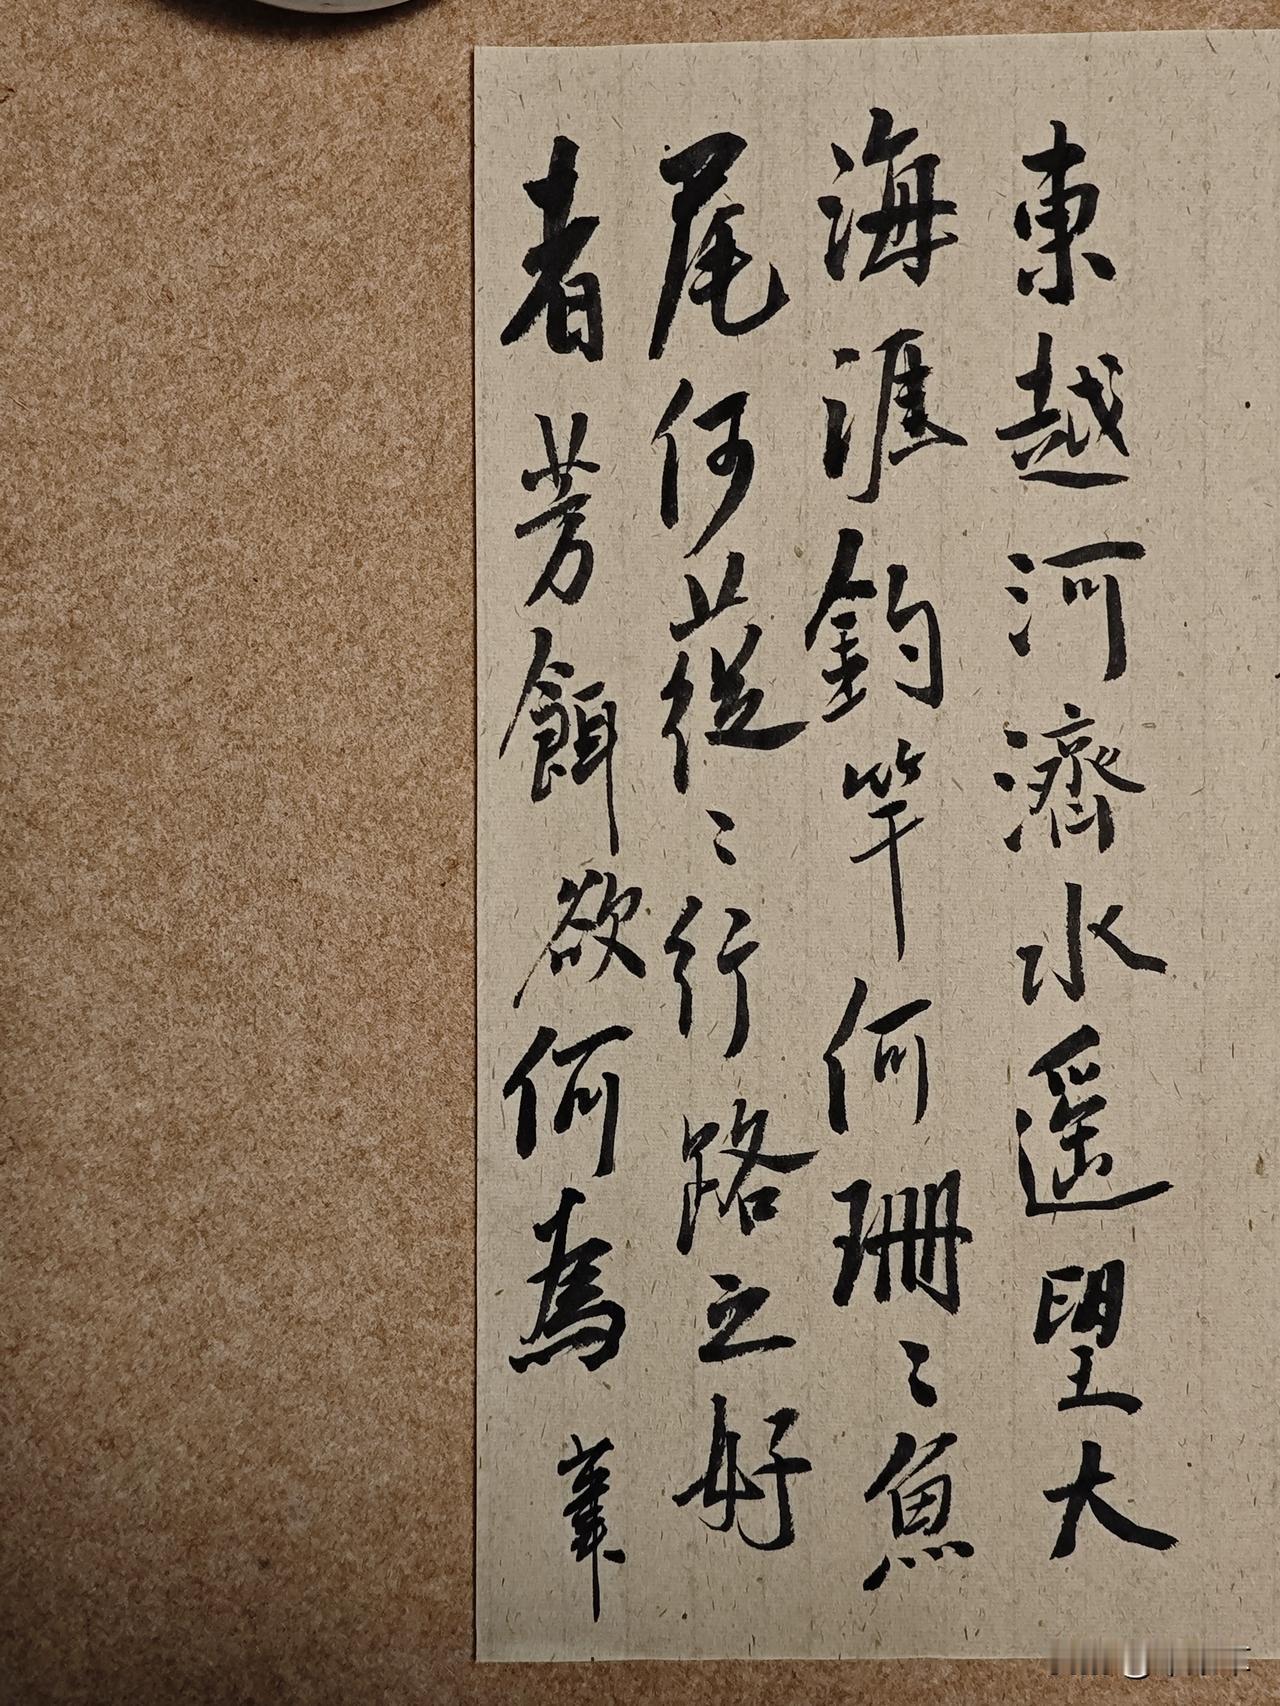 東越河濟水遥望大
海涯釣竿何珊〻魚
尾何蓰〻行路之好
者芳餌欲何為